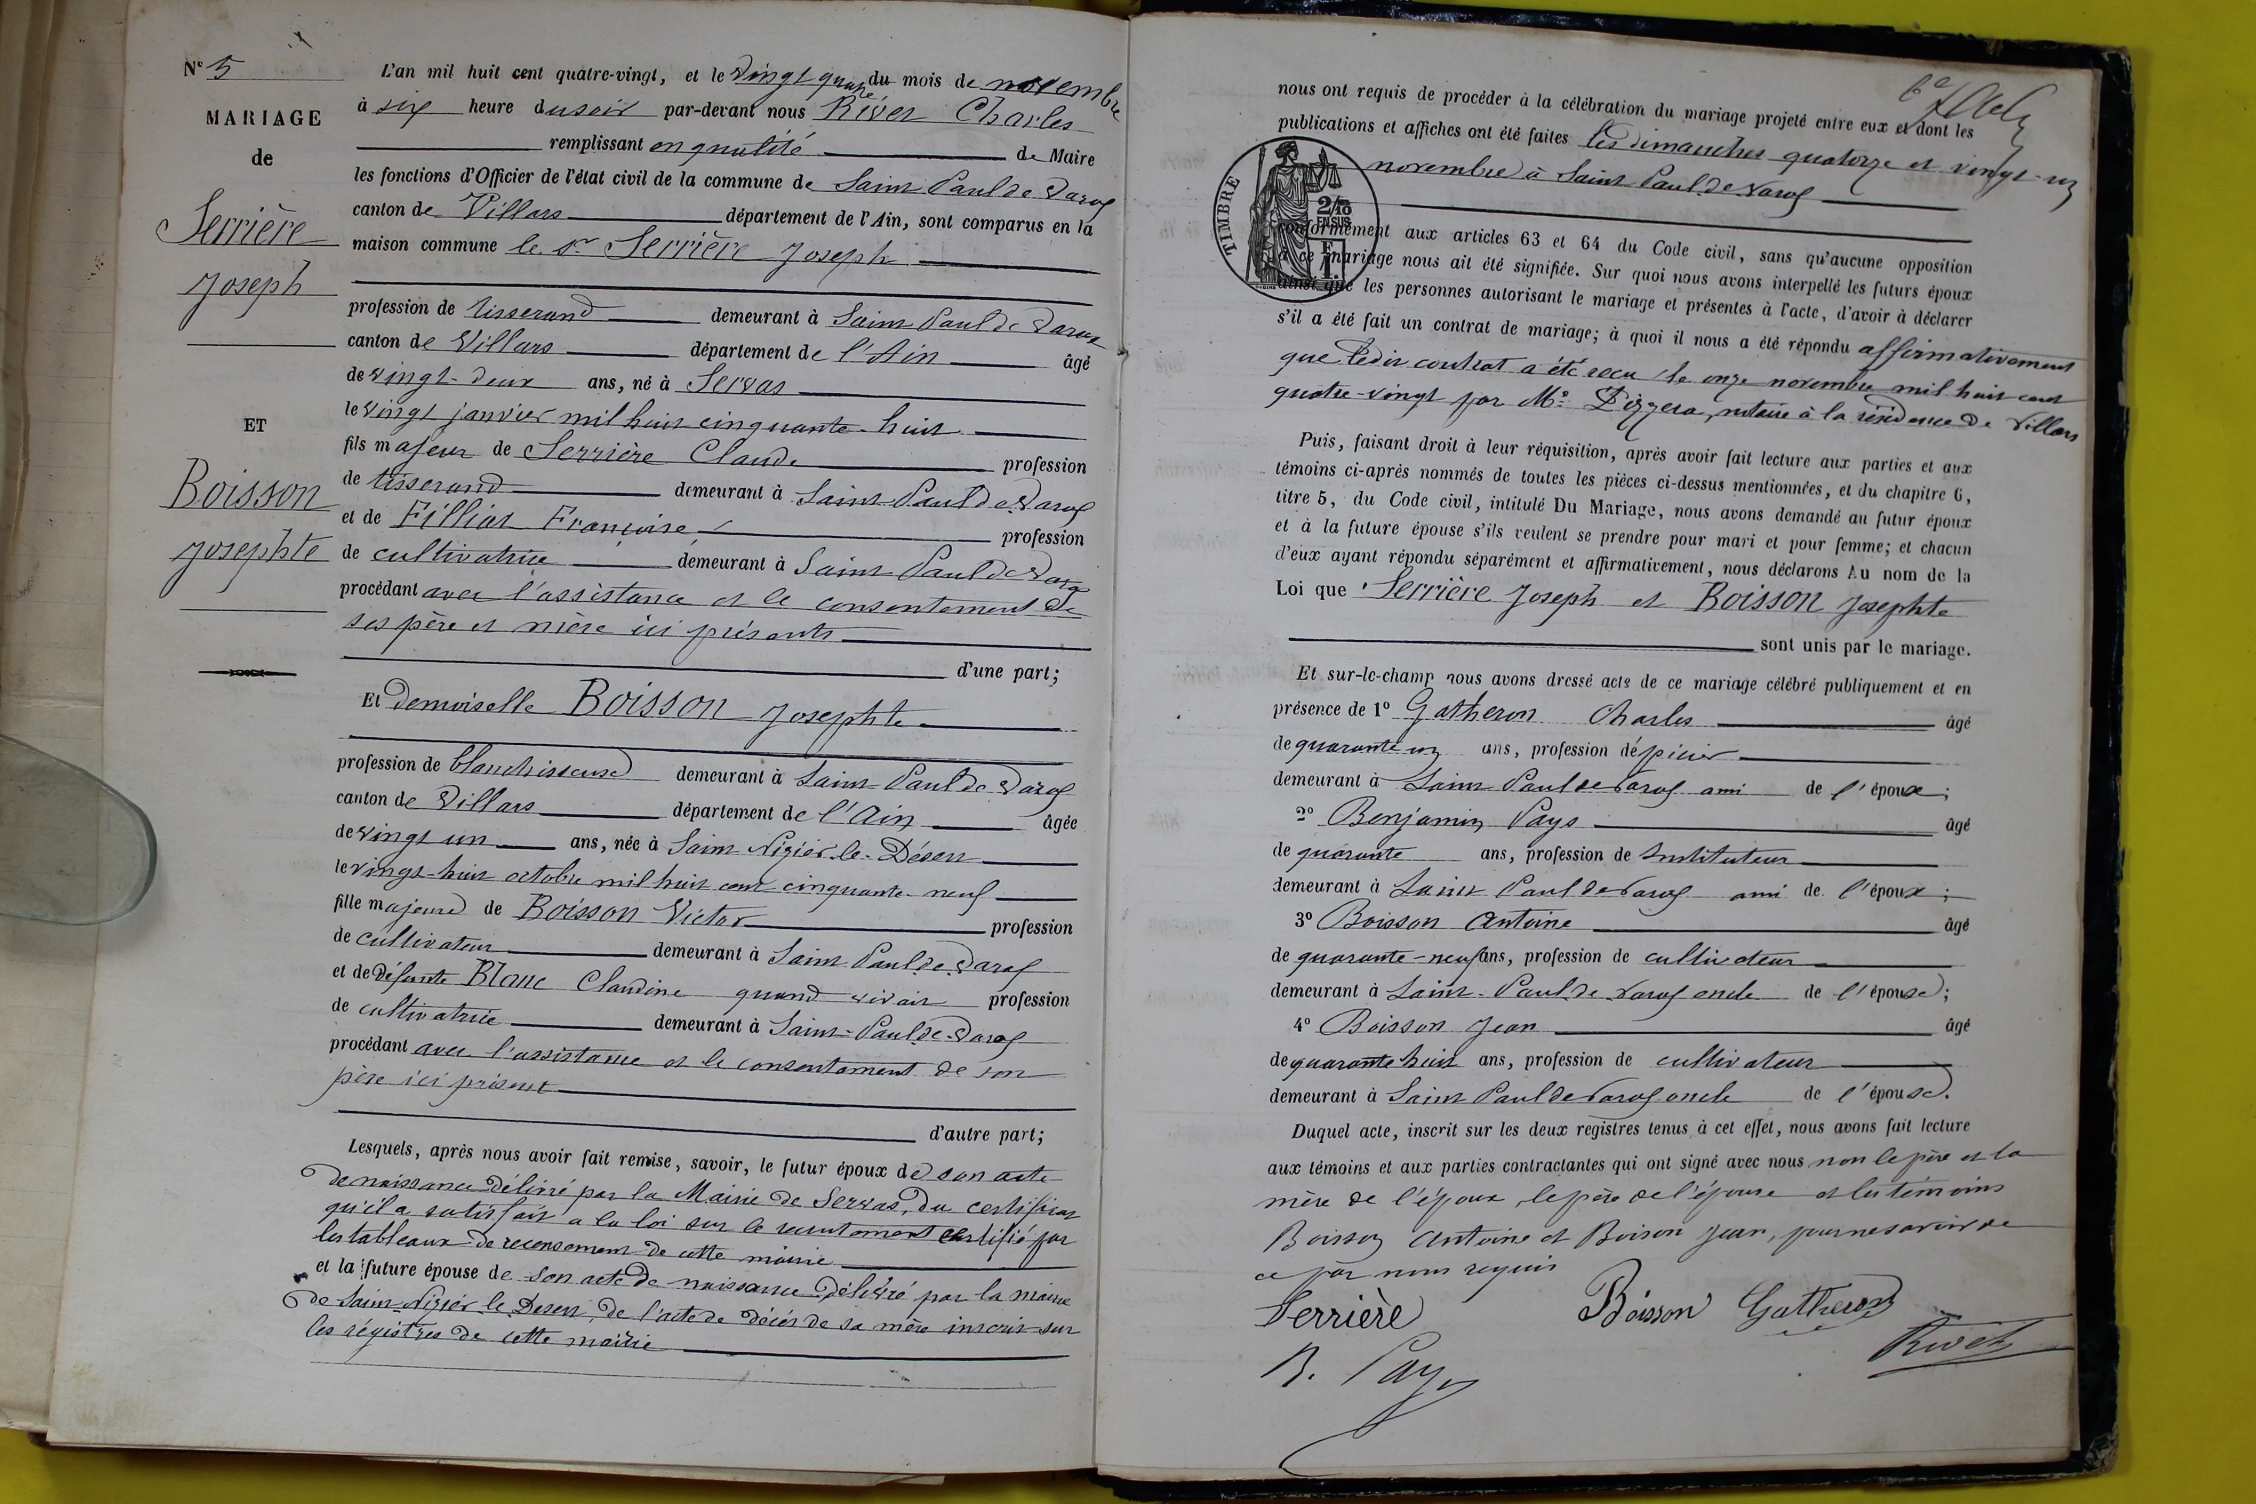 N° 5
MARIAGE
de
Serrière
Joseph
ET
Boisson
Josephte
L'an mil huit cent quatre-vingt, et le vingt quatre du mois de novembre
à six heure du soir par-devant nous Rivet Charles
remplissant en qualité de Maire
les fonctions d'Officier de l'état civil de la commune de Saint Paul de Varax
canton de Villars département de l'Ain, sont comparus en la
maison commune le Sr Serrière Joseph
profession de tisserand demeurant à Saint Paul de Varax
canton de Villars département de l'Ain âgé
de vingt-deux ans, né à Servas
le vingt janvier mil huit cinquante-huit
fils majeur de Serrière Claude profession
de tisserand demeurant à Saint Paul de Varax
et de Filliat Françoise profession
de cultivatrice demeurant à Saint Paul de Varax
procédant avec l'assistance et le consentement de
ses père et mère ici présents
d'une part;
Et demoiselle Boisson Josephte
profession de blanchisseuse demeurant à Saint Paul de Varax
canton de Villars département de l'Ain âgée
de vingt un ans, née à Saint Nizier-le-Déser
le vingt-huit octobre mil huit cent cinquante-neuf
fille majeure de Boisson Victor profession
de cultivateur demeurant à Saint Paul de Varax
et de défunte Blanc Claudine quand vivait profession
de cultivatrice demeurant à Saint-Paul-de-Varax
procédant avec l'assistance et le consentement de son
père ici présent
d'autre part;
Lesquels, après nous avoir fait remise, savoir, le futur époux de son acte
de naissance délivré par la Mairie de Servas, du certificat
qu'il a satisfait a la loi sur le recrutement certifié par
les tableaux de recensement de cette mairie
et la future épouse de son acte de naissance délivré par la mairie
de Saint Nizier le Desert, de l'acte de décès de sa mère inscrit sur
les régistres de cette mairie
nous ont requis de procéder à la célébration du mariage projeté entre eux et dont les
publications et affiches ont été faites les dimanches quatorze et vingt-un
novembre à Saint Paul de Varax
TIMBRE
2/10
EN SUS
conformément aux articles 63 et 64 du Code civil, sans qu'aucune opposition
à ce mariage nous ait été signifiée. Sur quoi nous avons interpellé les futurs époux
ainsi que les personnes autorisant le mariage et présentes à l'acte, d'avoir à déclarer
s'il a été fait un contrat de mariage; à quoi il nous a été répondu affirmativement
que ledit contrat a été reçu le onze novembre mil huit cent
quatre-vingt par Me notaire à la résidence de Villars
Puis, faisant droit à leur réquisition, après avoir fait lecture aux parties et aux
témoins ci-après nommés de toutes les pièces ci-dessus mentionnées, et du chapitre 6,
titre 5, du Code civil, intitulé Du Mariage, nous avons demandé au futur époux
et à la future épouse s'ils veulent se prendre pour mari et pour femme; et chacun
d'eux ayant répondu séparément et affirmativement, nous déclarons Au nom de la
Loi que Serrière Joseph et Boisson Josephte
sont unis par le mariage.
Et sur-le-champ nous avons dressé acte de ce mariage célébré publiquement et en
présence de 1° Gatheron Charles âgé
de quarante un ans, profession d'épicier
demeurant à Saint Paul de Varax ami de l'époux;
2° Benjamin Pays âgé
de quarante ans, profession de Instituteur
demeurant à Saint Paul de Varax ami de l'époux;
3° Boisson Antoine âgé
de quarante-neuf ans, profession de cultivateur
demeurant à Saint-Paul de Varax oncle de l'épouse;
4° Boisson Jean âgé
de quarante huit ans, profession de cultivateur
demeurant à Saint Paul de Varax oncle de l'épouse.
Duquel acte, inscrit sur les deux registres tenus à cet effet, nous avons fait lecture
aux témoins et aux parties contractantes qui ont signé avec nous non le père et la
mère de l'époux, le père de l'épouse et les témoins
Boisson Antoine et Boison Jean, pour ne savoir de
ce par nous requis
Serrière Boisson Gatheron
B. Pays Rivet